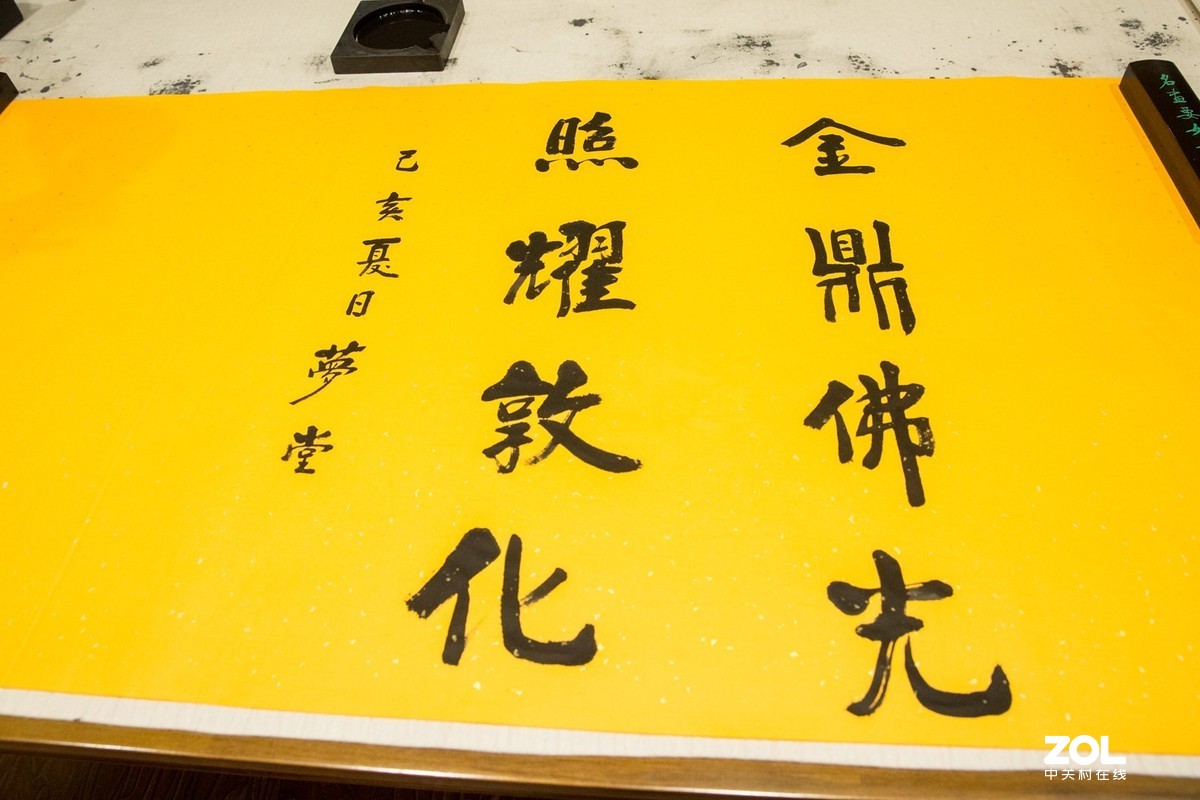 金鼎佛光
照耀敦化
己亥夏日夢堂
ZOL
中关村在线